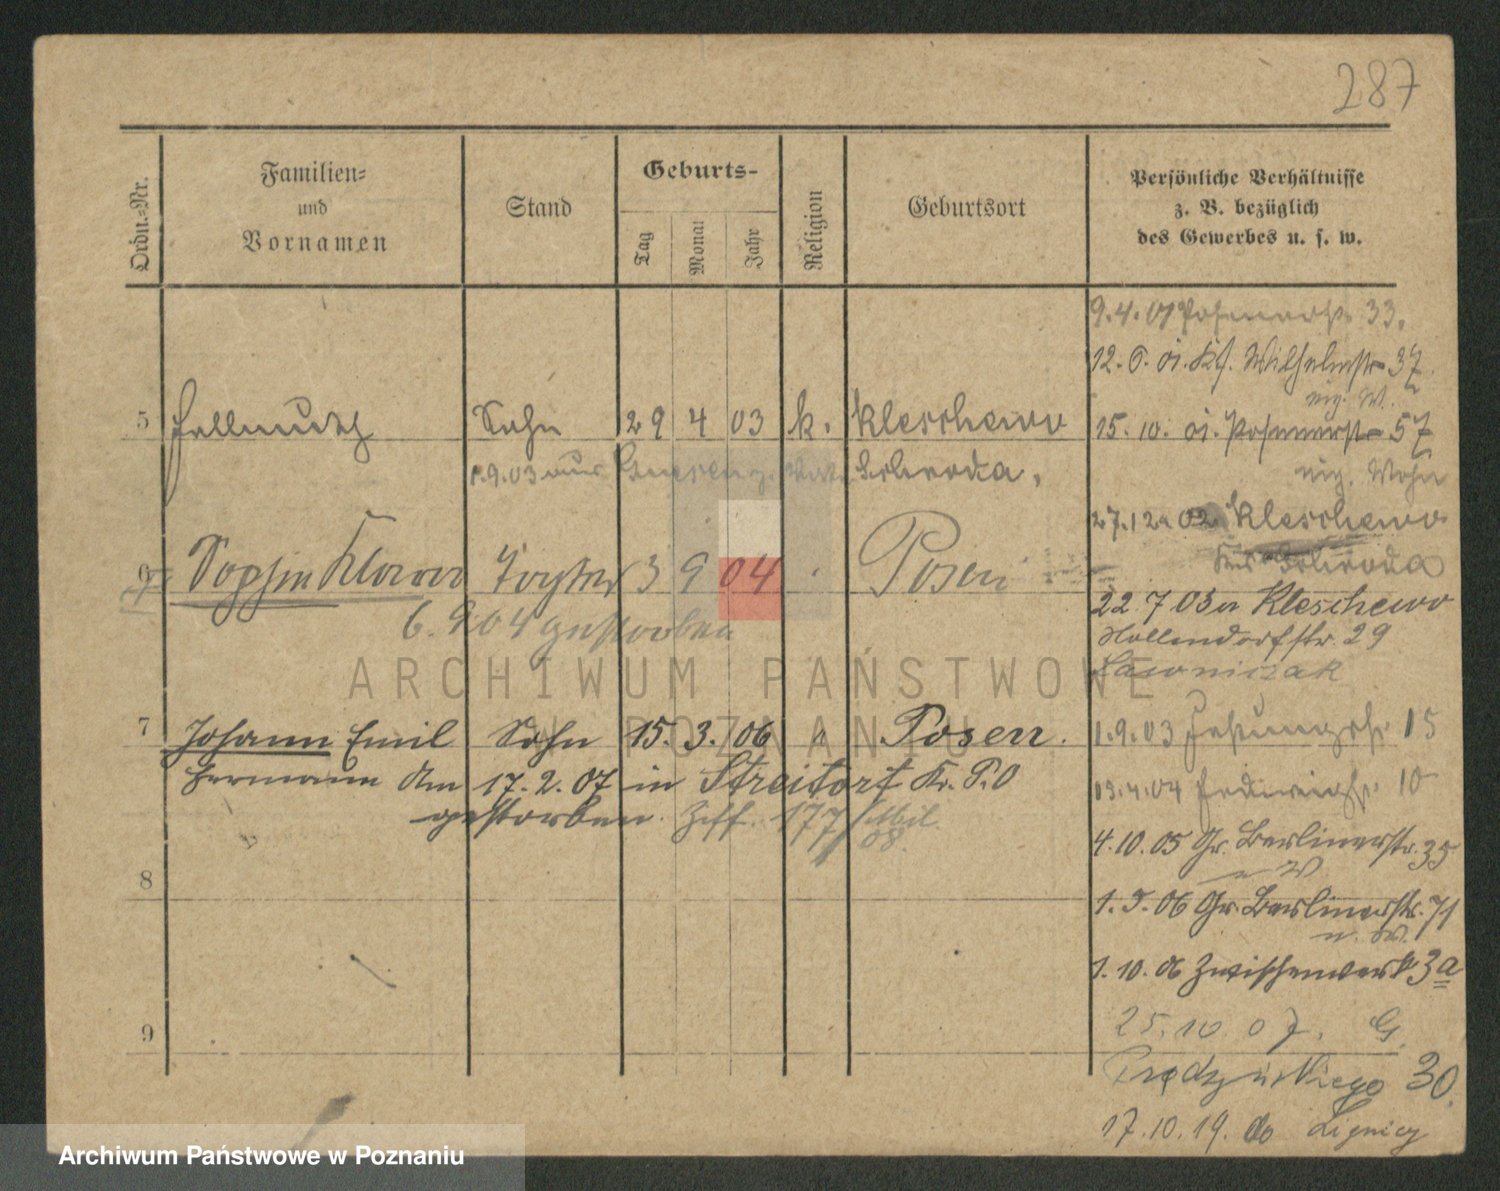 287
Ordn.-Nr.
Familien-
und
Vornamen
Stand
Geburts-
Tag
Monat
Jahr
Religion
Geburtsort
Persönliche Verhältnisse
z. B. bezüglich
des Gewerbes u. s. w.
9.4.01 Posenerstr. 33.
12. 6. 01. Kf. Wilhelmstr 37
eig. W.
5 Hellmuth Sohn 29 4 03 k. Kleschewo
15. 10. 01. Posenerstr 57
eig. Wohn
1.9.03 aus Schroda.
27.12. 02 Kleschewo
Schroda
6 Klara Tochter 3 9 04 Posen
22.7 03 Kleschewo
6. 9 04 gestorben
Hollendorfstr. 29
Lawniczak
7 Johann Emil Sohn 15. 3. 06 " Posen.
1.9.03 15
Hermann Am 17. 2. 07 in Streitort K. P. O
03.4.04 10
gestorben. Ziff. 177 Mil 08.
4.10.05 Gr. Berlinerstr. 35
W
8
1. 5. 06 Gr. Berlinerstr. 71
1. 10. 06 Zwischenwerk 3a
9
25. 10. 07. G.
Prądzyńskiego 30.
17. 10. 19. do Lignicy
ARCHIWUM PAŃSTWOWE
W POZNANIU
Archiwum Państwowe w Poznaniu